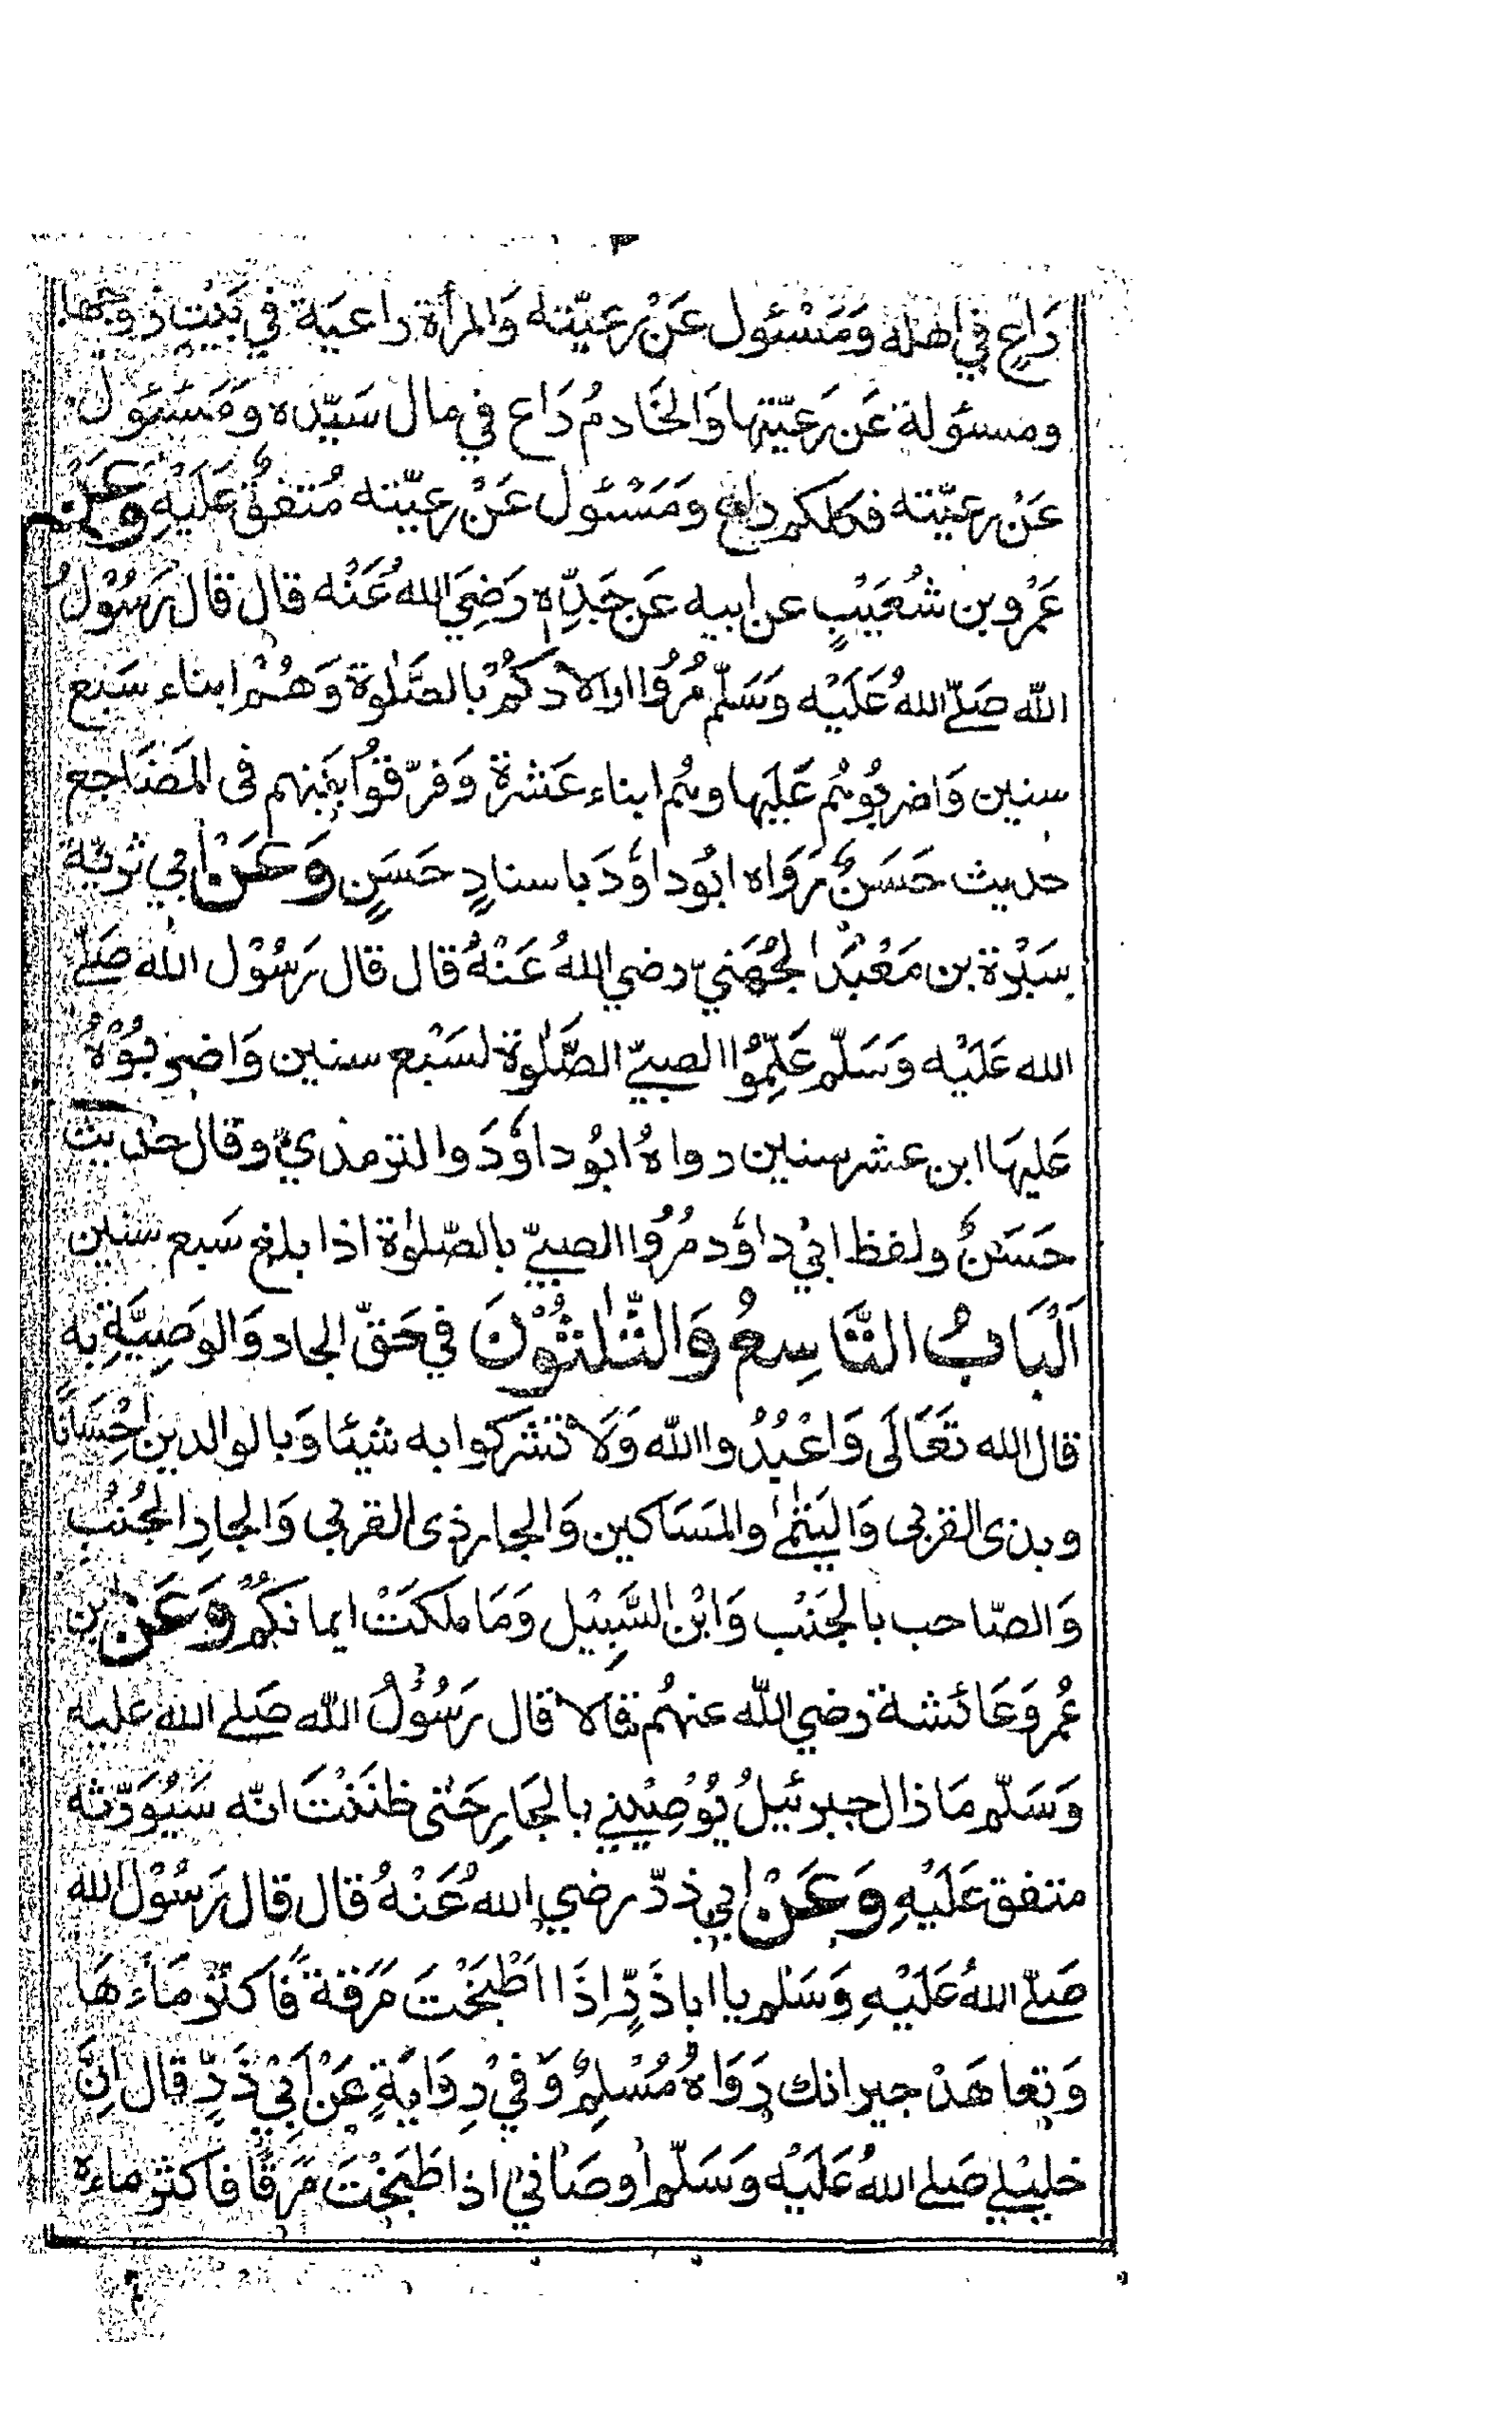 رَاعٍ في اهله وَمَسْئول عَنْ رعيّته وَالمرأة راعيَة في بَيْتِ زوجها
ومسئولة عَن رَعيّتها وَالخَادمُ رَاعٍ في مال سَيّده وَمَسْئول
عَنْ رعيّته فكلكم راع وَمَسْئول عَنْ رعيّته مُتفقٌ عَلَيْهِ وعَنْ
عَمْرو بن شُعَيْبٍ عن ابيه عَن جَدِّه رَضِيَ اللهُ عَنْه قال قال رَسُوْلُ
الله صَلّے اللهُ عَلَيْه وَسَلّم مُرُوْا اولادكُمْ بالصَّلٰوة وَهُمْ ابناء سَبع
سنين وَاضربُوهُم عَلَيها وهُم ابناء عَشرة وَفرّقوُا بَينهم فى المَضَاجع
حديث حَسَنٌ رَوَاه ابُو داوٗدَ باسنادٍ حَسَنٍ وَعَنْ ابي ثريّة
سَبْرة بن مَعْبَد الجُهَنيّ رضي اللهُ عَنْهُ قال قال رَسُوْل الله صَلّے
الله عَلَيْه وَسَلّم عَلِّمُوْا الصبيّ الصَّلٰوة لسَبْع سنين وَاضربُوْهُ
عَليهَا ابن عشر سنين رواهُ ابُو داوٗدَ والترمذيّ وقال حديث
حَسَنٌ ولفظ ابيْ داوٗد مُرُوْا الصبيّ بالصّلوٰة اذا بلغ سَبع سنين
اَلْبَابُ التَّاسِعُ وَالثَّلٰثُوْنَ في حَقّ الجار وَالوَصِيَّةِ به
قال الله تَعَالَى وَاعْبُدُوا الله وَلَا تشركوا به شيئا وَبالوالدين اِحْسَانًا
وبذى القربى وَاليَتٰمٰے والمَسَاكين وَالجار ذى القربى وَالجارِ الجُنُبِ
وَالصّاحب بالجَنْب وَابْن السَّبِيْل وَمَا ملكَتْ ايمانكُمْ وَعَنْ ابن
عُمر وَعَائشة رضي الله عنهُم قالا قال رَسُوْلُ الله صَلے الله عليه
وَسَلّم مَا زال جبرئيلُ يُوْصِيْني بالجَارِ حَتى ظنَنْتَ انّه سَيُوَرّثه
متفق عَلَيْهِ وَعَنْ ابي ذرّ رضي اللهُ عَنْهُ قال قال رَسُوْل الله
صَلّے اللهُ عَلَيْهِ وَسَلم يا ابا ذَرٍّ اِذَا اطْبَخْتَ مَرَقةً فَاكثر مَاءهَا
وَتعاهَدْ جيرانك رَوَاهُ مُسْلِمٌ وَفيْ رِوَايَةٍ عَنْ اَبِيْ ذَرٍّ قال اِنَّ
خليْلے صَلے اللهُ عَلَيْه وَسَلّم اوصَانيْ اذا طَبَخْتَ مَرقًا فاكثر ماءه